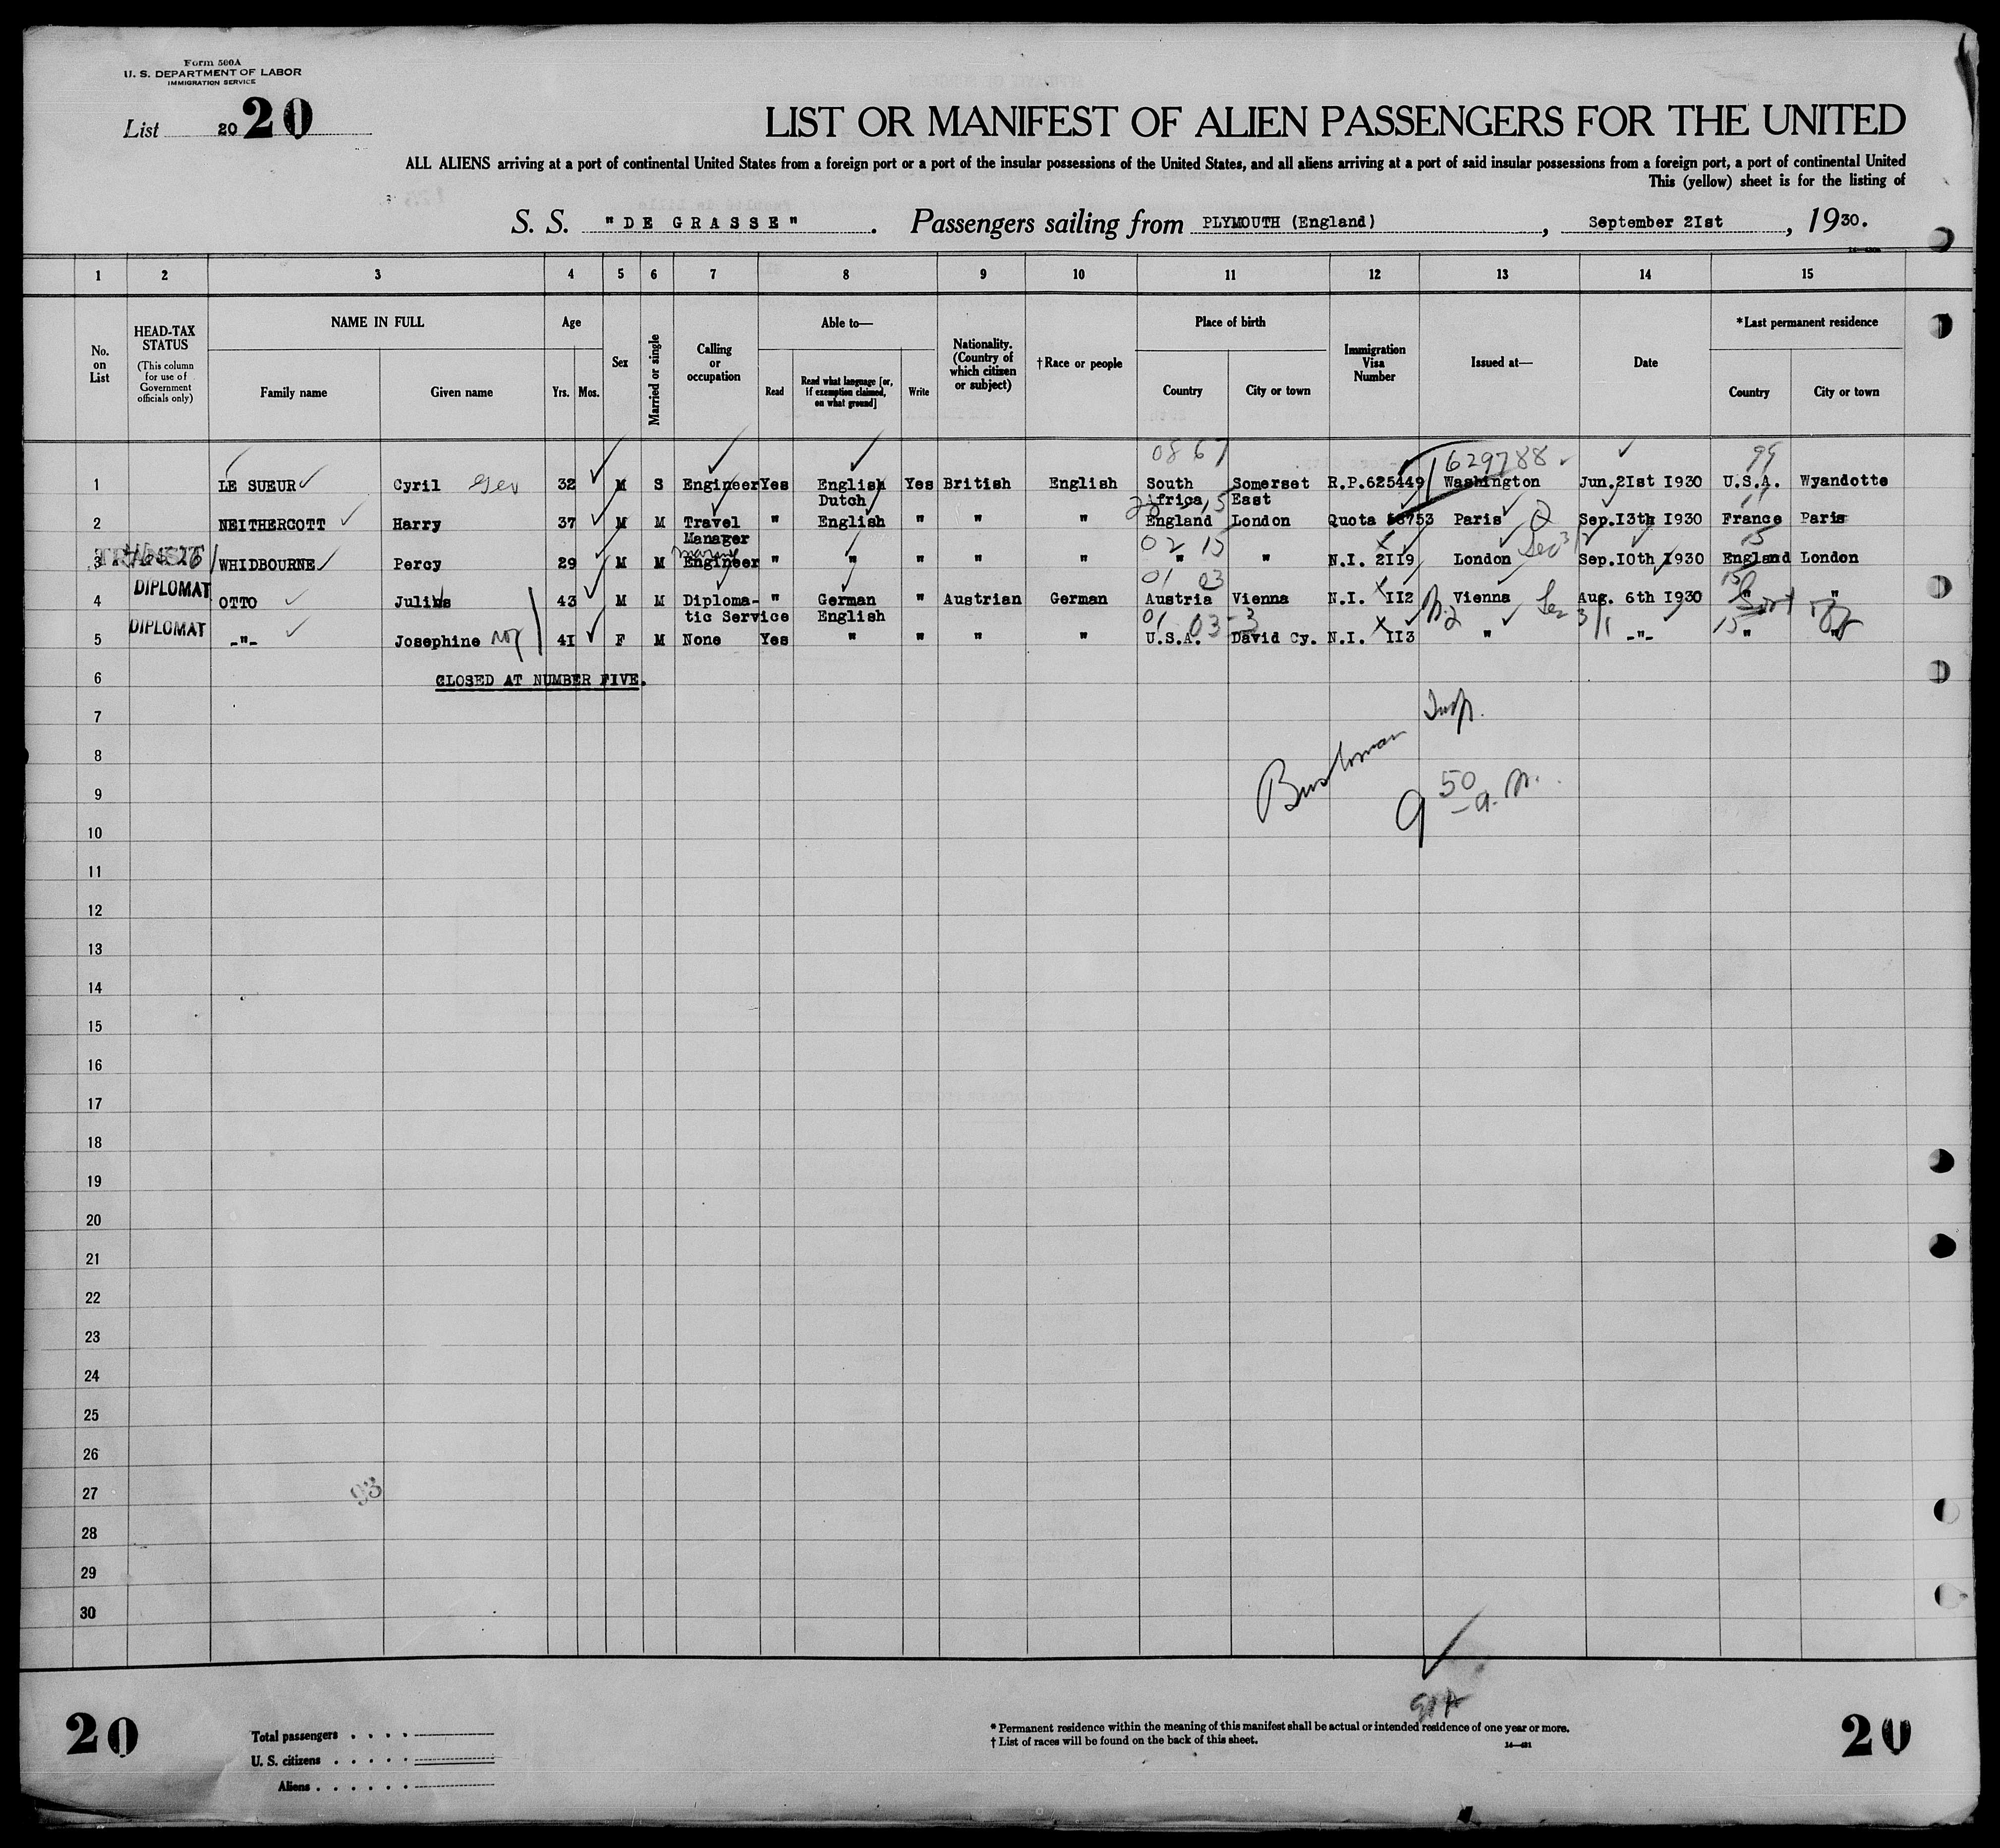 Form 500A
U. S. DEPARTMENT OF LABOR
IMMIGRATION SERVICE
List 20 20
LIST OR MANIFEST OF ALIEN PASSENGERS FOR THE UNITED
ALL ALIENS arriving at a port of continental United States from a foreign port or a port of the insular possessions of the United States, and all aliens arriving at a port of said insular possessions from a foreign port, a port of continental United
This (yellow) sheet is for the listing of
S. S. "DE GRASSE". Passengers sailing from PLYMOUTH (England), September 2Ist, 1930.
1 2 3 4 5 6 7 8 9 10 11 12 13 14 15
No. on List
HEAD-TAX STATUS
(This column for use of Government officials only)
NAME IN FULL
Family name Given name
Age
Yrs. Mos.
Sex
Married or single
Calling or occupation
Able to—
Read Read what language [or, if exemption claimed, on what ground] Write
Nationality. (Country of which citizen or subject)
†Race or people
Place of birth
Country City or town
Immigration Visa Number
Issued at—
Date
*Last permanent residence
Country City or town
0867 629788 99
1 LE SUEUR Cyril 32 M S Engineer Yes English Yes British English South Somerset R.P.625449 Washington Jun.2Ist I930 U.S.A. Wyandotte
Dutch Africa East
2 NEITHERCOTT Harry 37 M M Travel " English " " " England London Quota 56753 Paris Q Sep.I3th I930 France Paris
Manager
02 15 15
TRANSIT
3 WHIDBOURNE Percy 29 M M marine Engineer " " " " " " " N.I. 2II9 London Sec 3/2 Sep.I0th I930 England London
01 03 15
DIPLOMAT
4 OTTO Julius 43 M M Diploma- " German " Austrian German Austria Vienna N.I. II2 Vienna Aug. 6th I930 " "
tic Service English
01 03-3 15
DIPLOMAT
5 -"- Josephine 4I F M None Yes " " " " U.S.A. David Cy. N.I. II3 " 3/1 -"- " "
6 CLOSED AT NUMBER FIVE.
7
Insp.
8
9
9 50 a.m.
10
11
12
13
14
15
16
17
18
19
20
21
22
23
24
25
26
27
93
28
29
30
20
Total passengers . . . .
U. S. citizens . . . . .
Aliens . . . . . .
*Permanent residence within the meaning of this manifest shall be actual or intended residence of one year or more.
†List of races will be found on the back of this sheet.
20